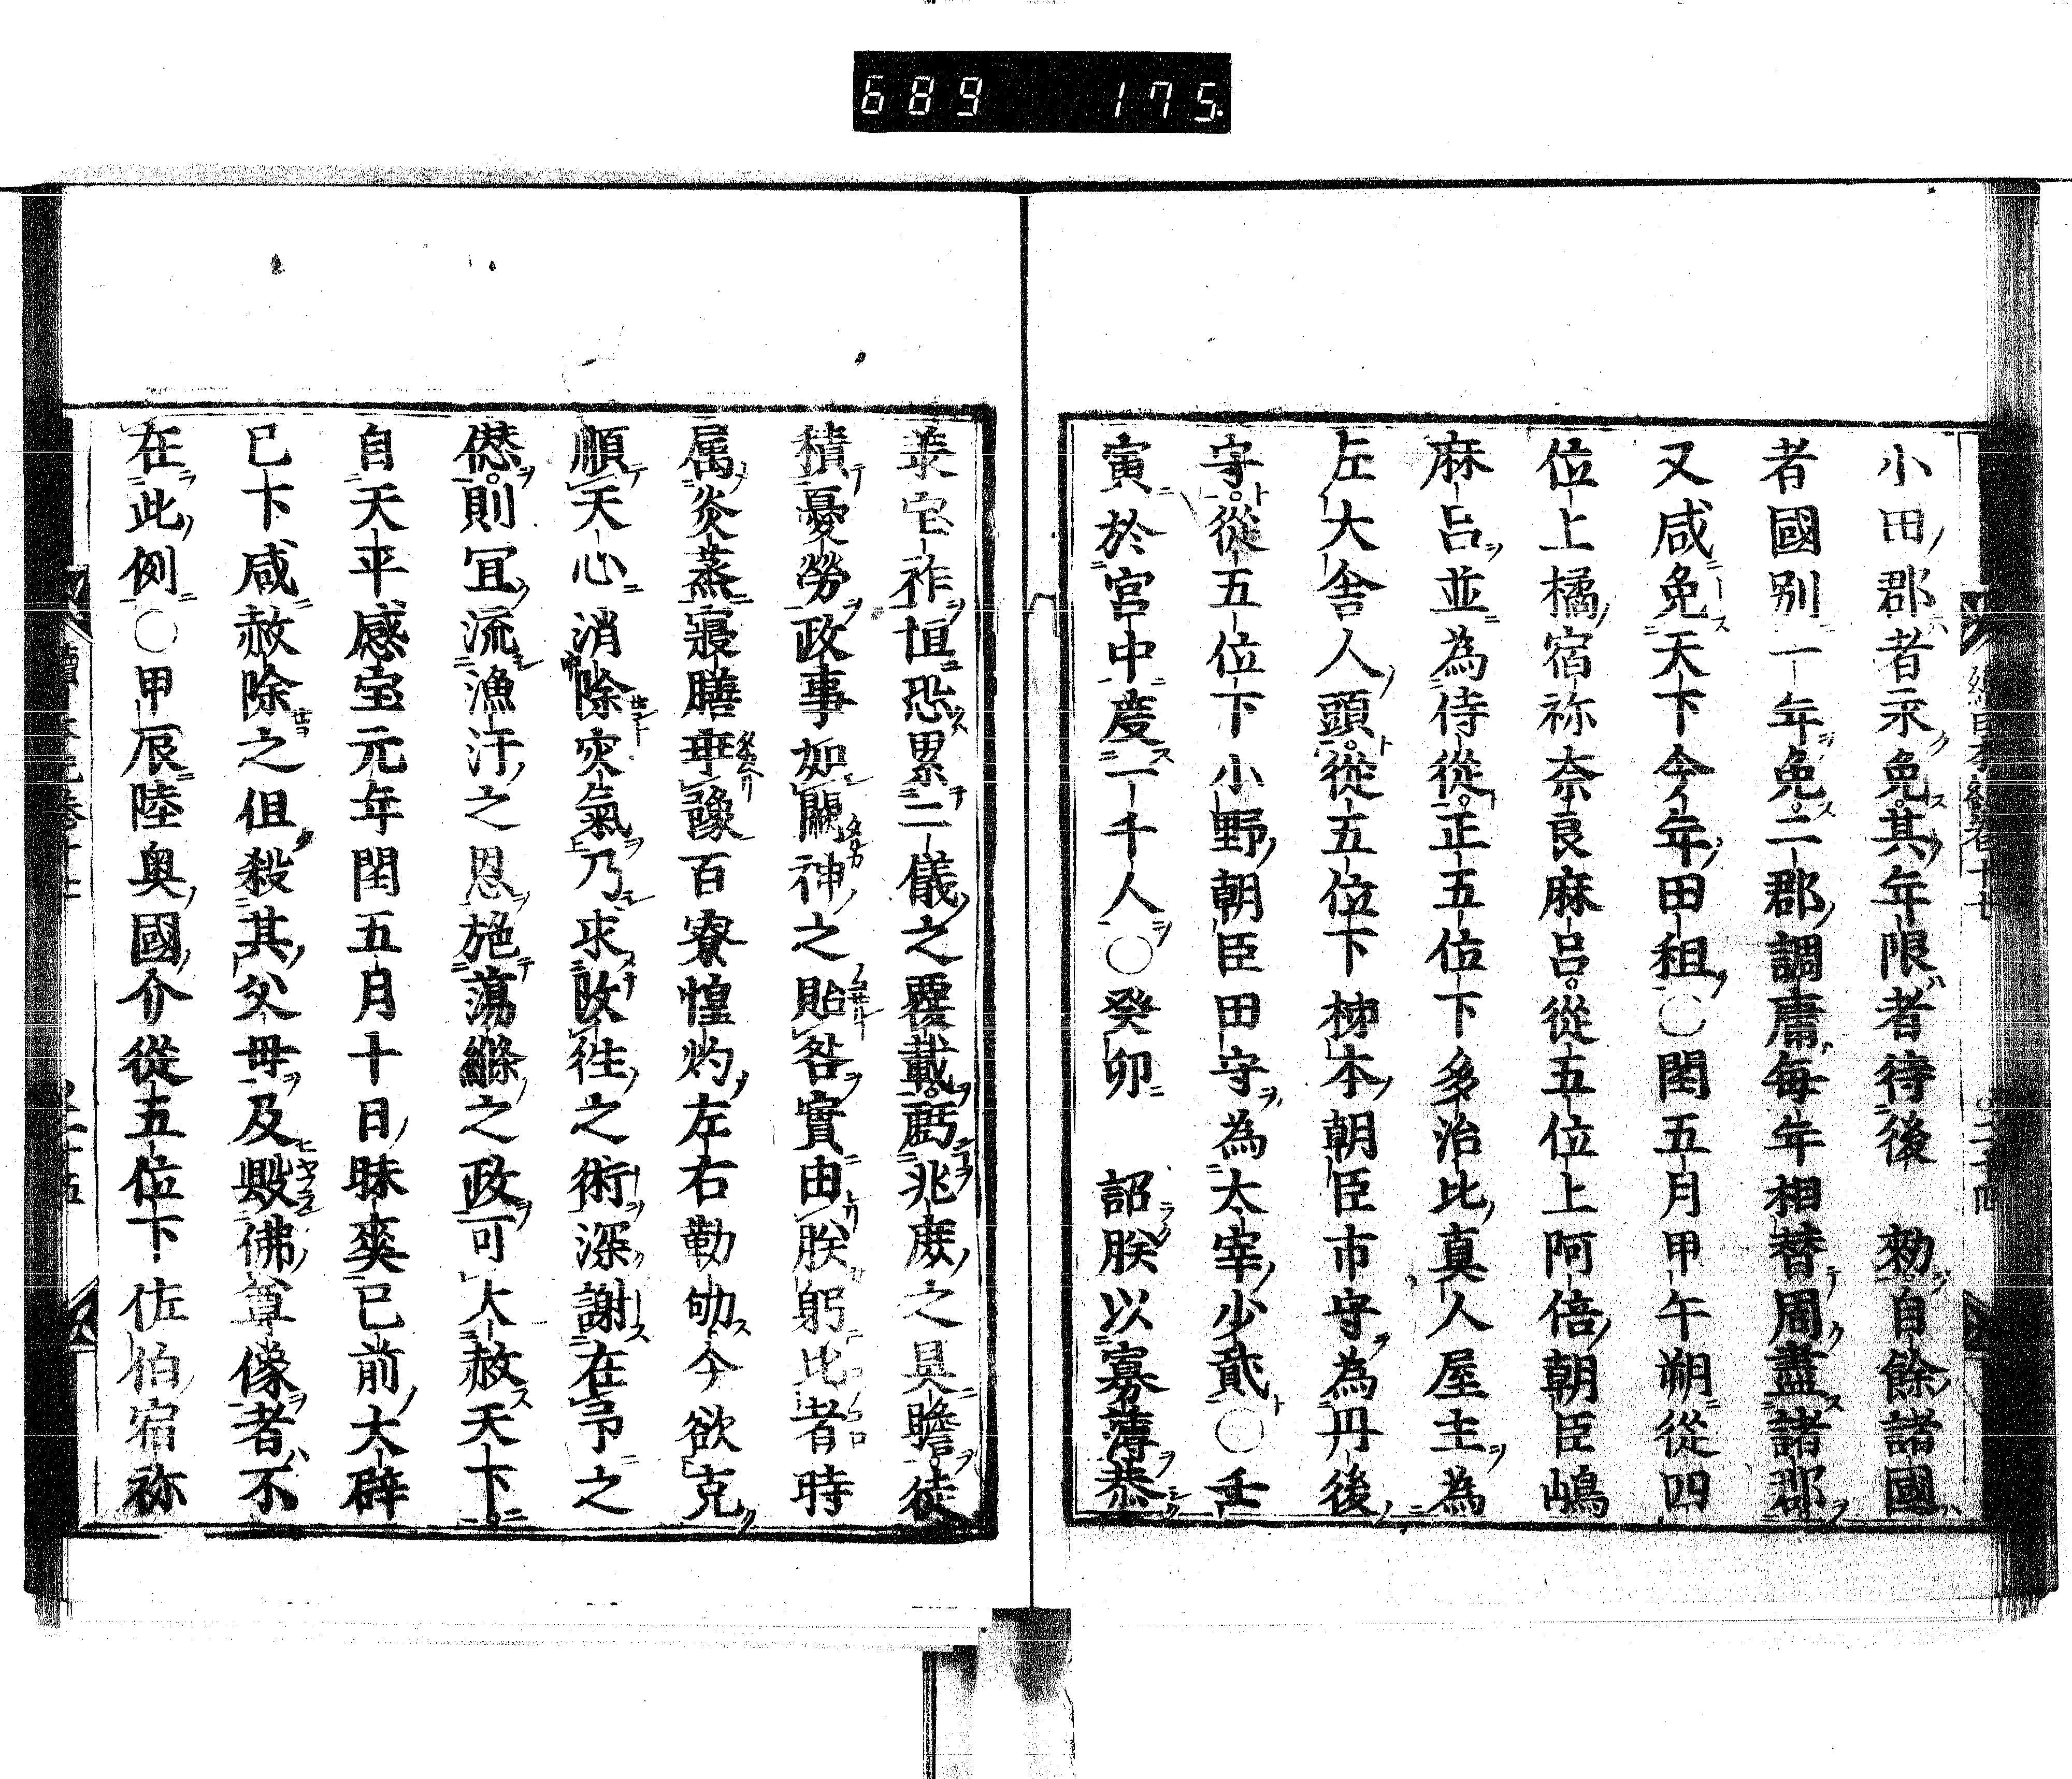 689 175
小田郡者永免其年限者待後 勅自餘諸國
者國別一年免二郡調庸毎年相替周盡諸郡
又咸免天下今年田租〇閏五月甲午朔從四
位上橘宿祢奈良麻呂從五位上阿倍朝臣嶋
麻呂並為侍從正五位下多治比真人屋主為
左大舎人頭從五位下柹本朝臣市守為丹後
守從五位下小野朝臣田守為太宰少貳〇壬
寅於宮中度一千人〇癸卯 詔朕以寡薄恭
羕宝祚恒恐累二儀之覆載虧兆庶之具瞻徒
積憂勞政事如闕神之貽咎實由朕躬比者時
属炎蒸寝膳乖豫百寮惶灼左右勤劬今欲克
順天心消除灾氣乃求改徃之術深謝在予之
㒋則冝流渙汗之恩施蕩滌之政可大赦天下
自天平感宝元年閏五月十日昧爽已前大辟
已下咸赦除之但殺其父母及毀佛尊像者不
在此例〇甲辰陸奥國介從五位下佐伯宿祢